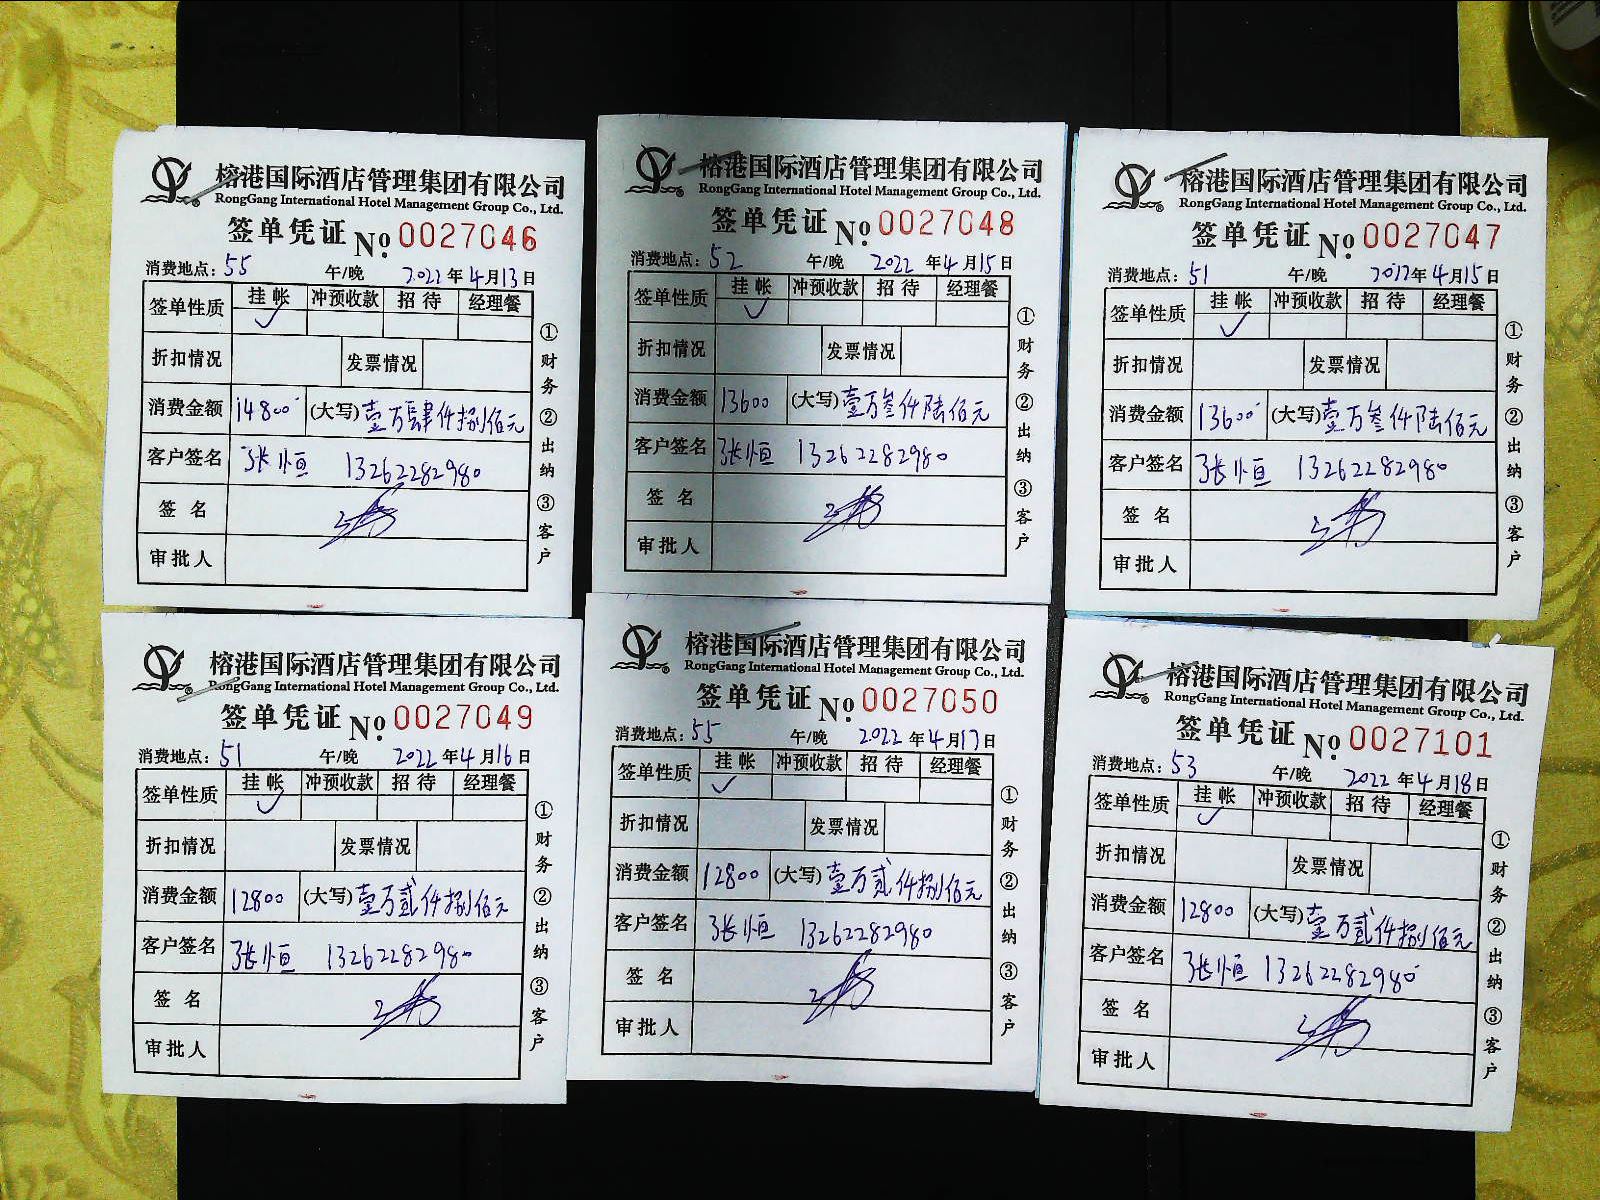 榕港国际酒店管理集团有限公司
RongGang International Hotel Management Group Co., Ltd.
签单凭证 No. 0027046
消费地点：55 午/晚 2022年4月13日
签单性质 挂帐 冲预收款 招待 经理餐
✓
折扣情况 发票情况
消费金额 14800 (大写)壹万肆仟捌佰元
客户签名 张恒 13262282980
签名
审批人
①财务 ②出纳 ③客户
榕港国际酒店管理集团有限公司
RongGang International Hotel Management Group Co., Ltd.
签单凭证 No. 0027048
消费地点：52 午/晚 2022年4月15日
签单性质 挂帐 冲预收款 招待 经理餐
✓
折扣情况 发票情况
消费金额 13600 (大写)壹万叁仟陆佰元
客户签名 张恒 13262282980
签名
审批人
①财务 ②出纳 ③客户
榕港国际酒店管理集团有限公司
RongGang International Hotel Management Group Co., Ltd.
签单凭证 No. 0027047
消费地点：51 午/晚 2022年4月15日
签单性质 挂帐 冲预收款 招待 经理餐
✓
折扣情况 发票情况
消费金额 13600 (大写)壹万叁仟陆佰元
客户签名 张恒 13262282980
签名
审批人
①财务 ②出纳 ③客户
榕港国际酒店管理集团有限公司
RongGang International Hotel Management Group Co., Ltd.
签单凭证 No. 0027049
消费地点：51 午/晚 2022年4月16日
签单性质 挂帐 冲预收款 招待 经理餐
✓
折扣情况 发票情况
消费金额 12800 (大写)壹万贰仟捌佰元
客户签名 张恒 13262282980
签名
审批人
①财务 ②出纳 ③客户
榕港国际酒店管理集团有限公司
RongGang International Hotel Management Group Co., Ltd.
签单凭证 No. 0027050
消费地点：55 午/晚 2022年4月17日
签单性质 挂帐 冲预收款 招待 经理餐
✓
折扣情况 发票情况
消费金额 12800 (大写)壹万贰仟捌佰元
客户签名 张恒 13262282980
签名
审批人
①财务 ②出纳 ③客户
榕港国际酒店管理集团有限公司
RongGang International Hotel Management Group Co., Ltd.
签单凭证 No. 0027101
消费地点：53 午/晚 2022年4月18日
签单性质 挂帐 冲预收款 招待 经理餐
✓
折扣情况 发票情况
消费金额 12800 (大写)壹万贰仟捌佰元
客户签名 张恒 13262282980
签名
审批人
①财务 ②出纳 ③客户